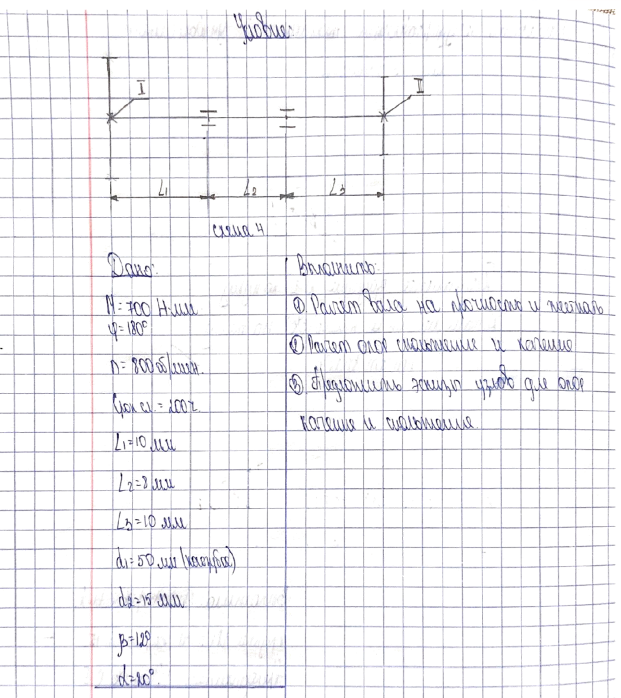 Условие:
I
II
L1
L2
L3
схема 4
Дано:
M=700 Н·мм
φ=180°
n=800 об/мин.
сл.=200ч
L1=10 мм
L2=8 мм
L3=10 мм
d1=50 мм
d2=15 мм
β=12°
α=20°
Выполнить:
① Расчет вала на прочность и жесткость
② Расчет опор скольжение и качение
③ Предложить эскизы узлов для опор
качения и скольжения